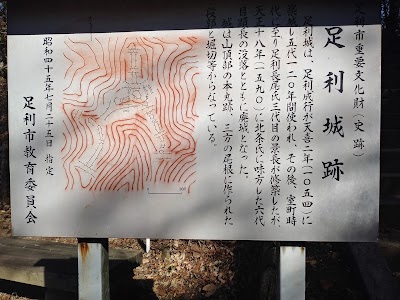 足利市重要文化財（史跡）
足利城跡
足利城は、足利成行が天喜二年（一〇五四）に
五代一二〇年間使われ、その後、室町時
代に至り足利長尾氏三代目の景長が修築したが、
天正十八年（一五九〇）に北条氏に味方した六代
目顕長の没落とともに廃城となった。
城は山頂部の本丸跡、三方の尾根に作られた
と堀切等からなっている。
昭和四十五年七月二十五日 指定
足利市教育委員会